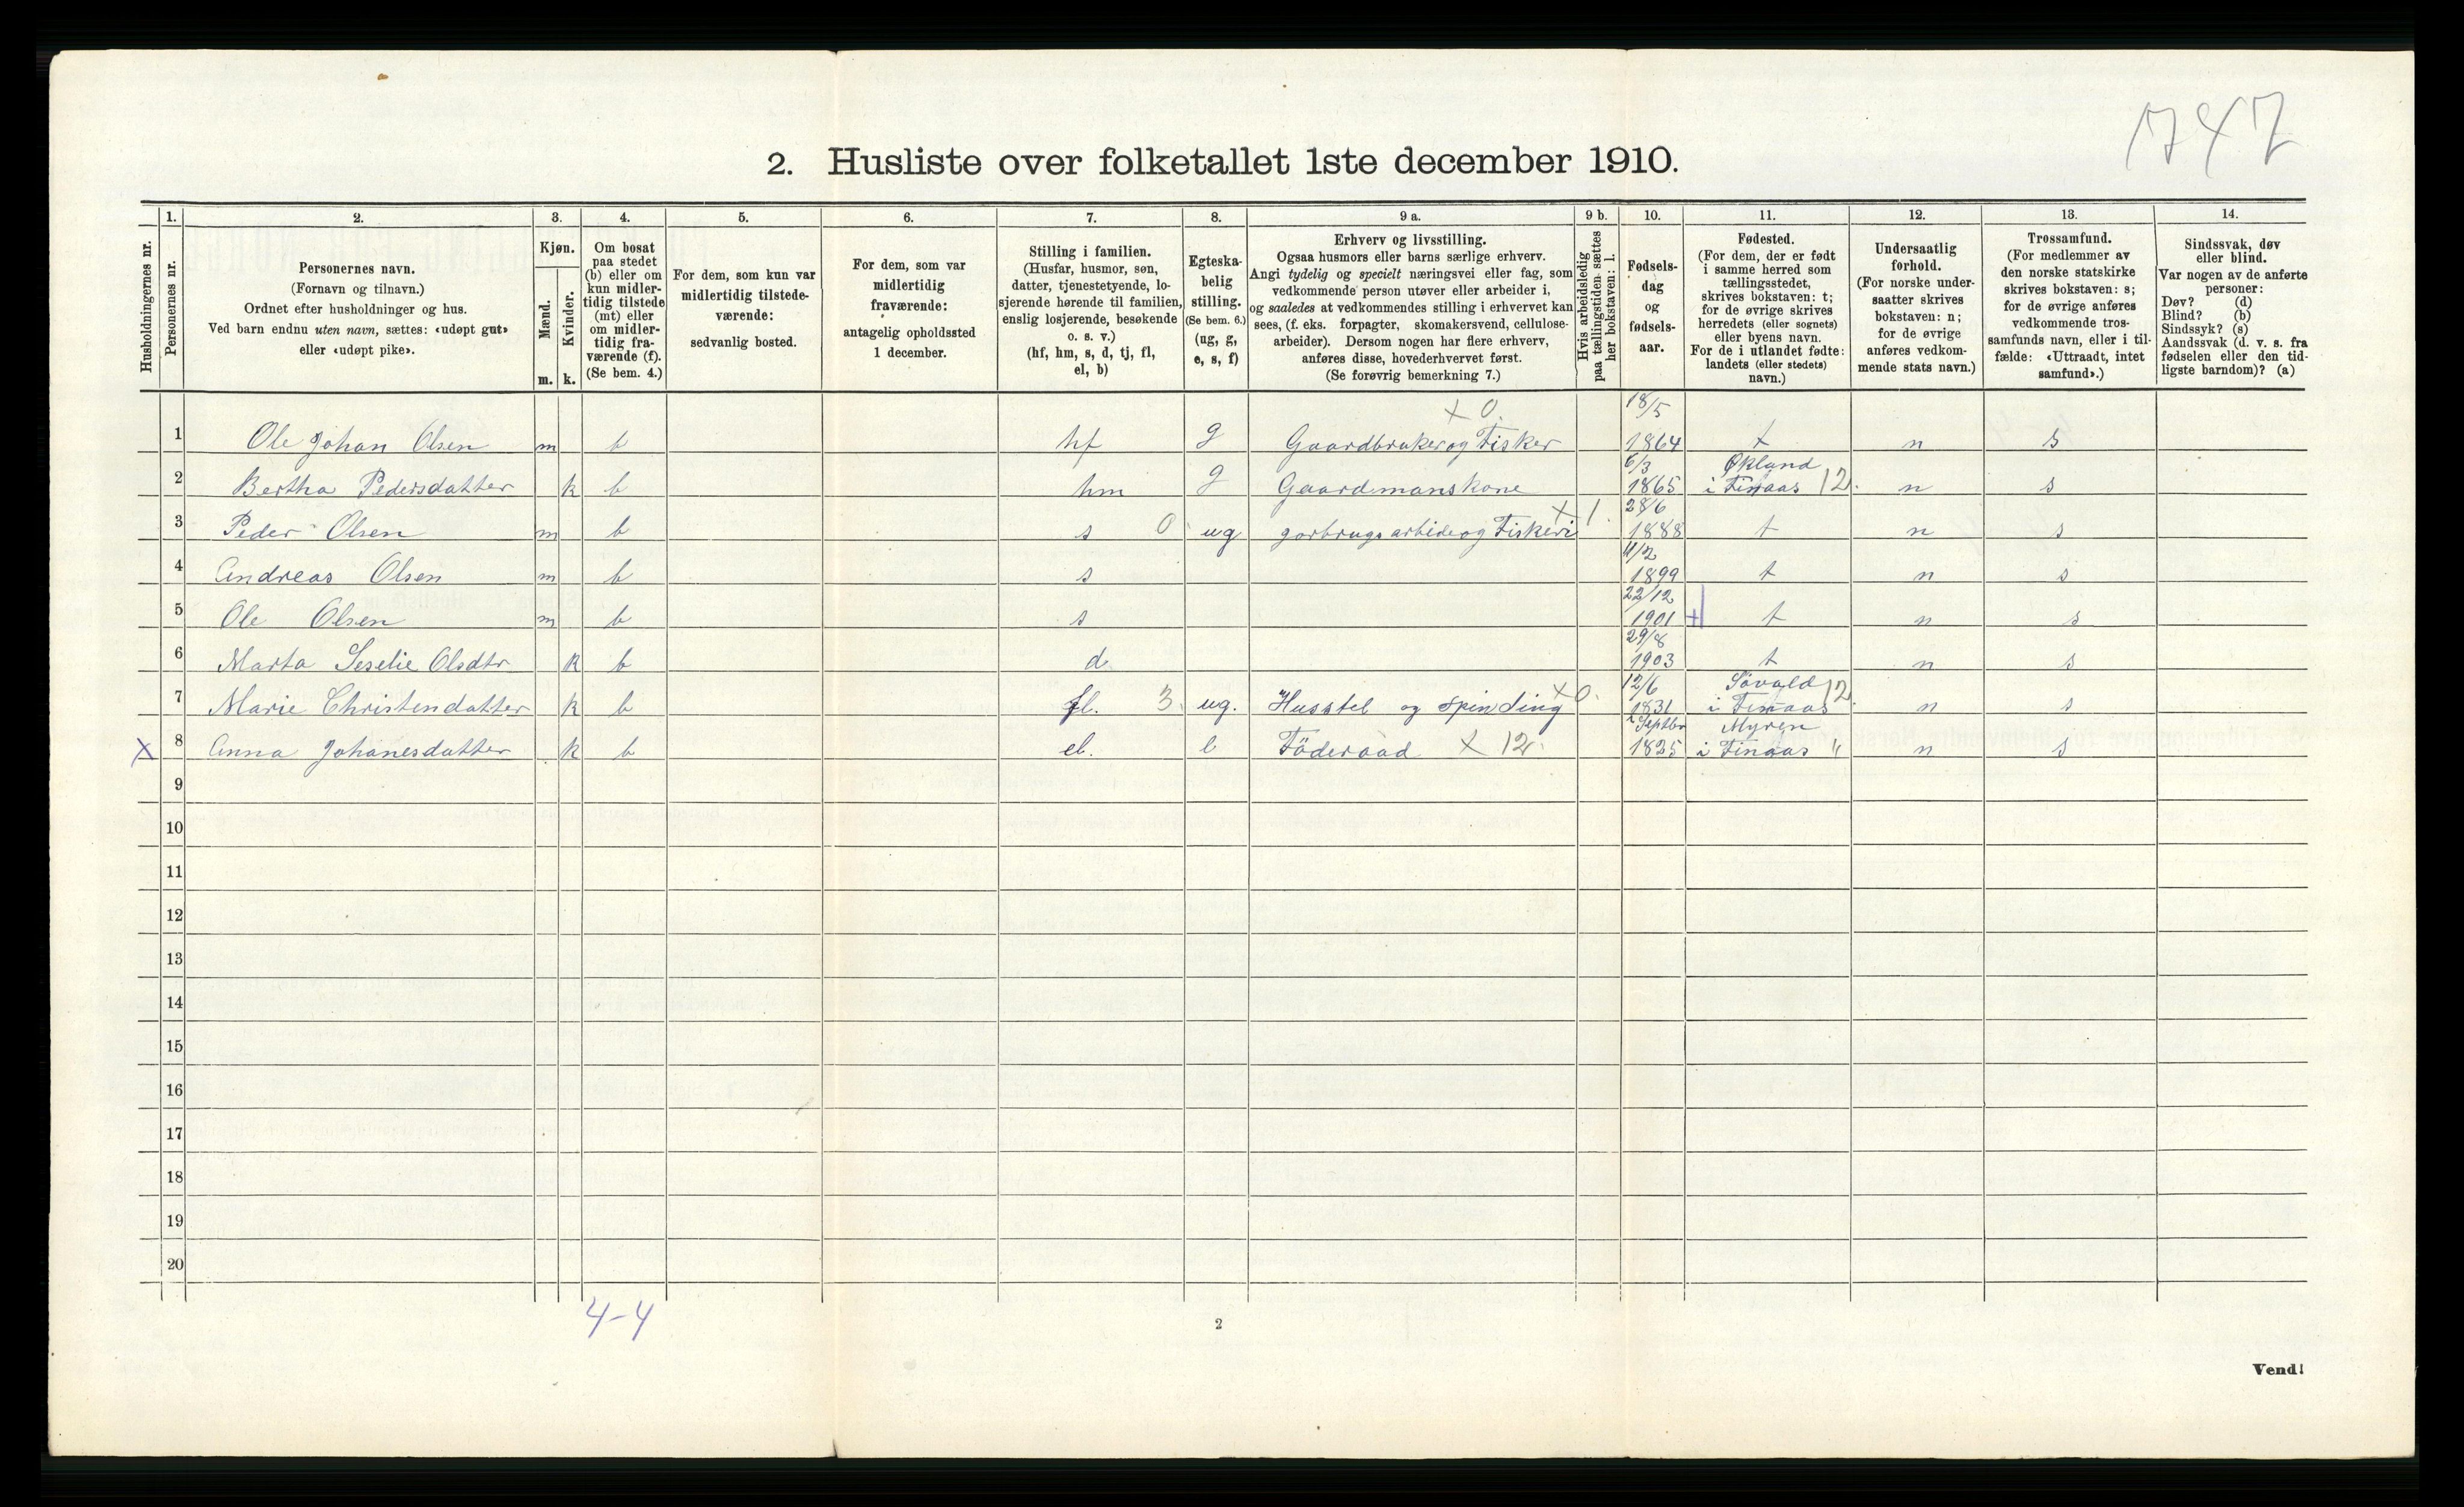 1747
2. Husliste over folketallet 1ste december 1910.
Husholdningernes nr.
1. Personernes nr.
2. Personernes navn. (Fornavn og tilnavn.) Ordnet efter husholdninger og hus. Ved barn endnu uten navn, sættes: «udøpt gut» eller «udøpt pike».
3. Kjøn. Mænd. m. Kvinder. k.
4. Om bosat paa stedet (b) eller om kun midler-tidig tilstede (mt) eller om midler-tidig fra-værende (f). (Se bem. 4.)
5. For dem, som kun var midlertidig tilstede-værende: sedvanlig bosted.
6. For dem, som var midlertidig fraværende: antagelig opholdssted 1 december.
7. Stilling i familien. (Husfar, husmor, søn, datter, tjenestetyende, lo-sjerende hørende til familien, enslig losjerende, besøkende o. s. v.) (hf, hm, s, d, tj, fl, el, b)
8. Egteska-belig stilling. (Se bem. 6.) (ug, g, e, s, f)
9 a. Erhverv og livsstilling. Ogsaa husmors eller barns særlige erhverv. Angi tydelig og specielt næringsvei eller fag, som vedkommende person utøver eller arbeider i, og saaledes at vedkommendes stilling i erhvervet kan sees, (f. eks. forpagter, skomakersvend, cellulose-arbeider). Dersom nogen har flere erhverv, anføres disse, hovederhvervet først. (Se forøvrig bemerkning 7.)
9 b. Hvis arbeidsledig paa tællingstiden sættes her bokstaven: l.
10. Fødsels-dag og fødsels-aar.
11. Fødested. (For dem, der er født i samme herred som tællingsstedet, skrives bokstaven: t; for de øvrige skrives herredets (eller sognets) eller byens navn. For de i utlandet fødte: landets (eller stedets) navn.)
12. Undersaatlig forhold. (For norske under-saatter skrives bokstaven: n; for de øvrige anføres vedkom-mende stats navn.)
13. Trossamfund. (For medlemmer av den norske statskirke skrives bokstaven: s; for de øvrige anføres vedkommende tros-samfunds navn, eller i til-fælde: «Uttraadt, intet samfund».)
14. Sindssvak, døv eller blind. Var nogen av de anførte personer: Døv? (d) Blind? (b) Sindssyk? (s) Aandssvak (d. v. s. fra fødselen eller den tid-ligste barndom)? (a)
1 Ole Johan Olsen m b hf g Gaardbruker og Fisker x 0. 18/5 1864 t n s
2 Bertha Pedersdatter k b hm g Gaardmanskone 6/3 1865 Økland i Finaas 12. n s
3 Peder Olsen m b s 0 ug gorbrugsarbide og Fiskeri x 1. 28/6 1888 t n s
4 Andreas Olsen m b s 4/2 1899 t n s
5 Ole Olsen m b s 22/12 1901 t n s
6 Marta Seselie Olsdtr k b d 29/8 1903 t n s
7 Marie Christendatter k b fl. 3 ug. Husstel og spinding x 0. 12/6 1831 Søvold i Finaas 12. n s
x 8 Anna Johanesdatter k b el. e Föderaad x 12. i Septbr 1825 Myren i Finaas " n s
9
10
11
12
13
14
15
16
17
18
19
20
4-4
2
Vend!